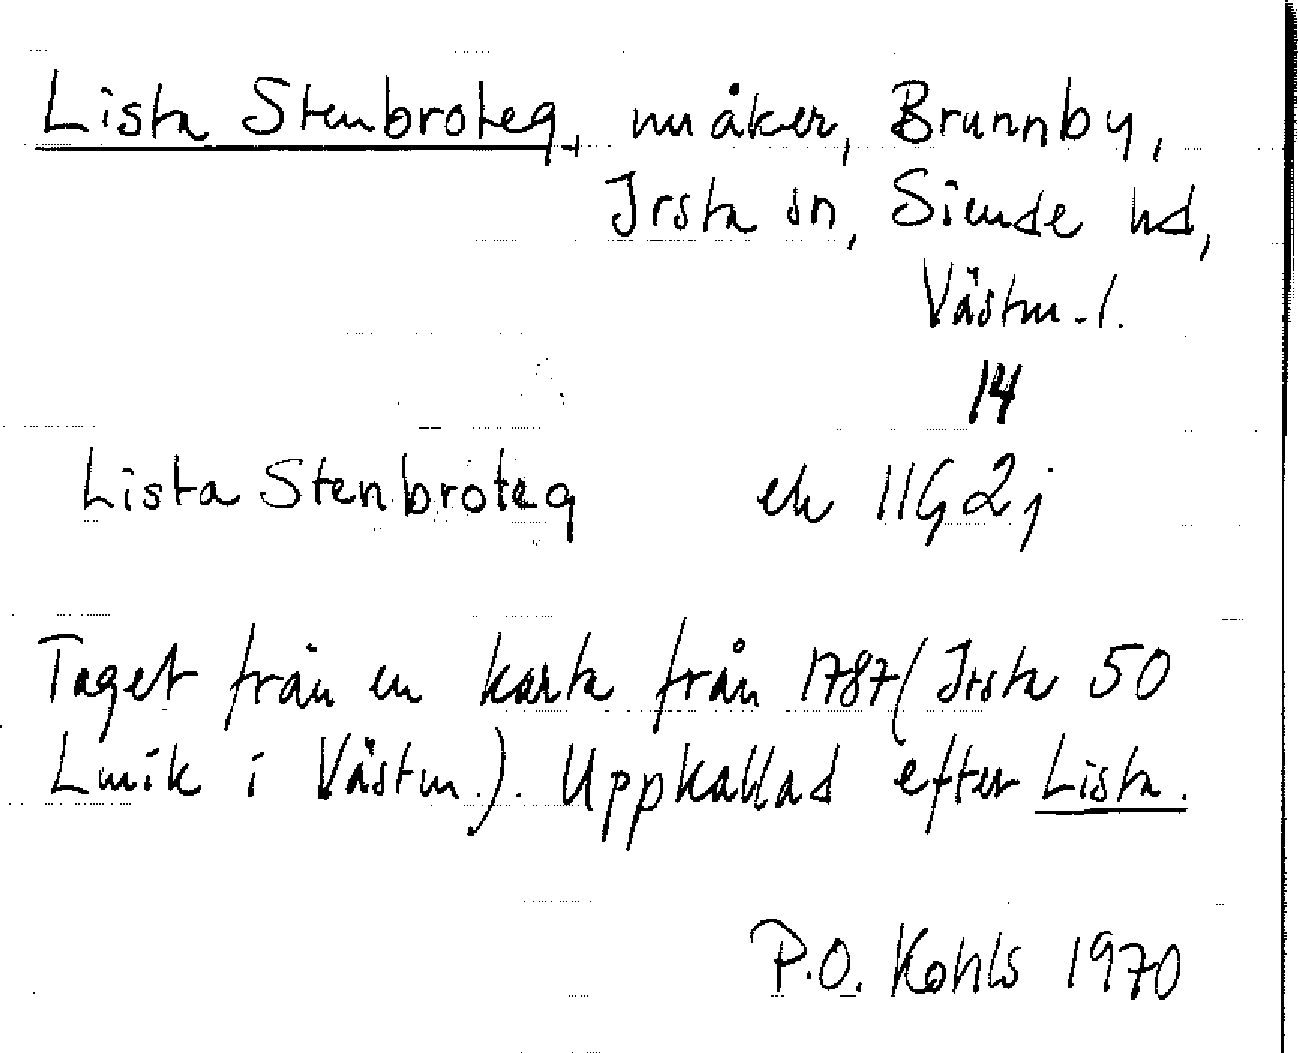 Lista Stenbroteg, nu åker, Brunnby,
Irsta sn, Siende hd,
Västm. l.
14
Lista Stenbroteg ek 11G2j
Taget från en karta från 1787 (Irsta 50
Lmik i Västm.). Uppkallad efter Lista.
P.O. Kohls 1970